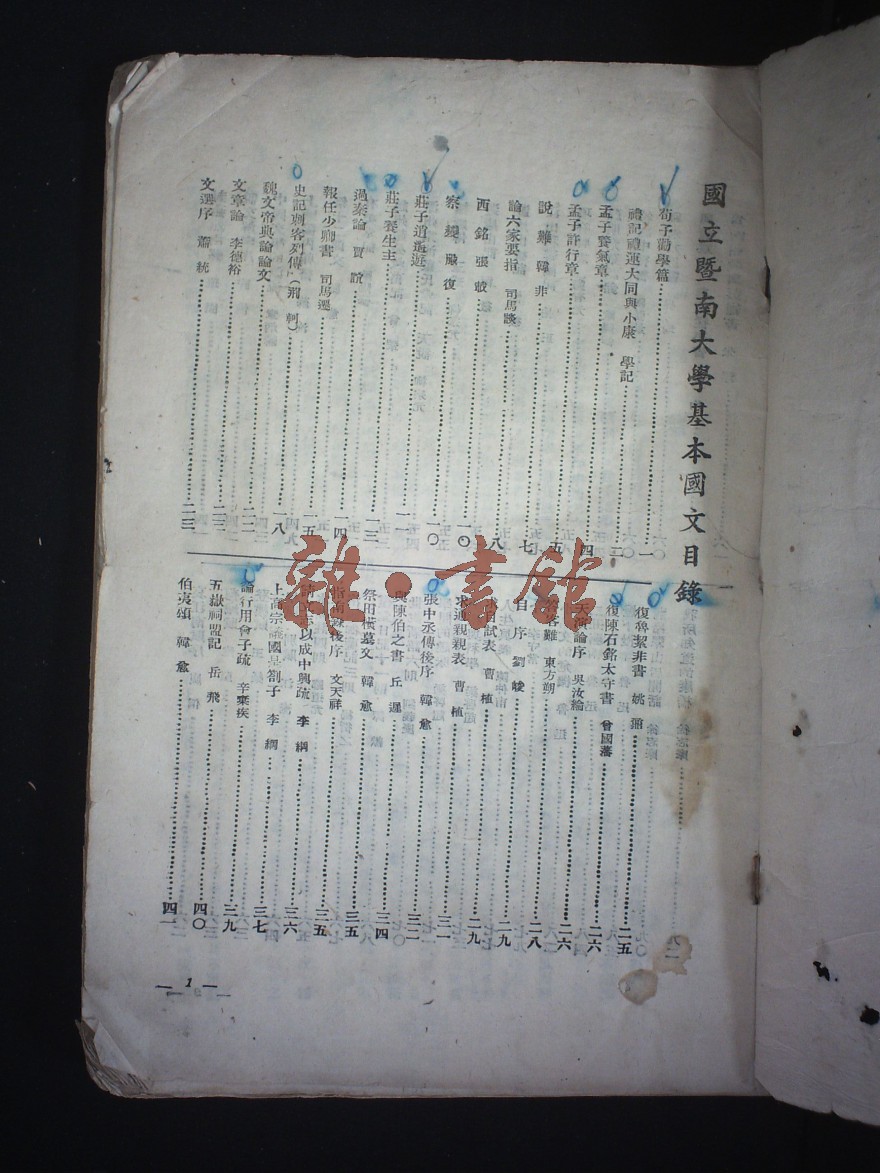 國立暨南大學基本國文目錄
荀子勸學篇 一
禮記禮運大同與小康 學記 二
孟子養氣章 四
孟子許行章 五
說難 韓非 七
論六家要指 司馬談 八
西銘 張載 一〇
察變 嚴復 一〇
莊子逍遙遊 一一
莊子養生主 一三
過秦論 賈誼 一四
報任少卿書 司馬遷 一五
史記刺客列傳(荊軻) 一八
魏文帝典論論文 二二
文章論 李德裕 二三
文選序 蕭統 二三
復魯絜非書 姚鼐 二五
復陳石銘太守書 曾國藩 二六
天演論序 吳汝綸 二六
客難 東方朔 二八
自序 劉峻 二九
自試表 曹植 二九
求通親親表 曹植 三一
張中丞傳後序 韓愈 三二
與陳伯之書 丘遲 三四
祭田橫墓文 韓愈 三五
指南錄後序 文天祥 三五
以成中興疏 李綱 三六
上高宗 國是劄子 李綱 三七
論行用會子疏 辛棄疾 三九
五嶽祠盟記 岳飛 四〇
伯夷頌 韓愈 四一
— 1 —
雜·書館